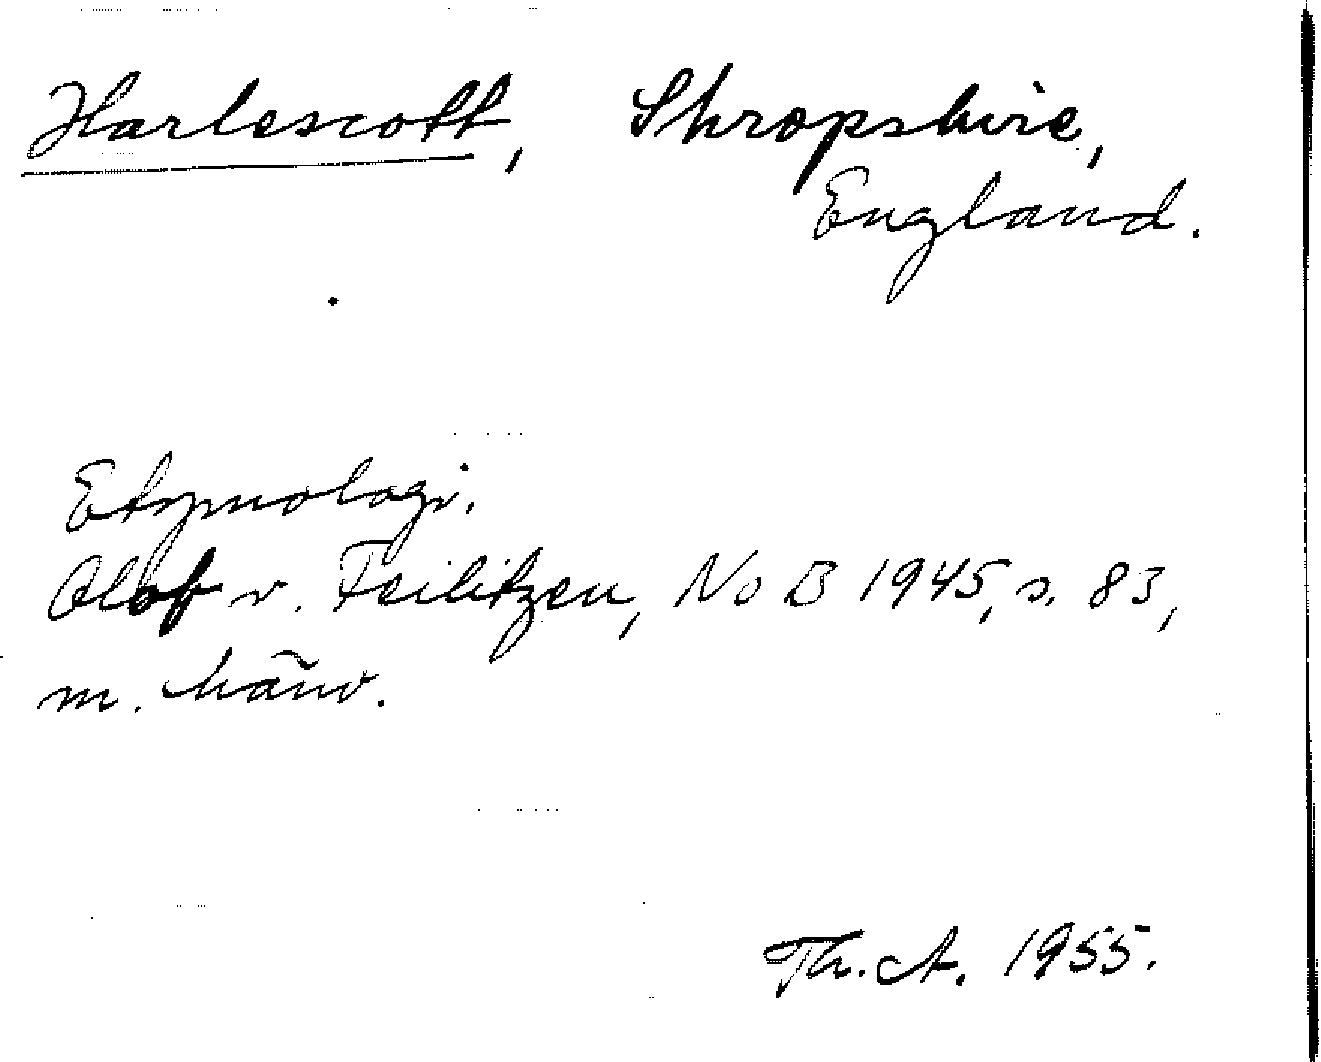 Harlescott, Shropshire,
England.
Etymologi.
Olof v. Feilitzen, NoB 1945, s. 83,
m. hänv.
Th. A. 1955.